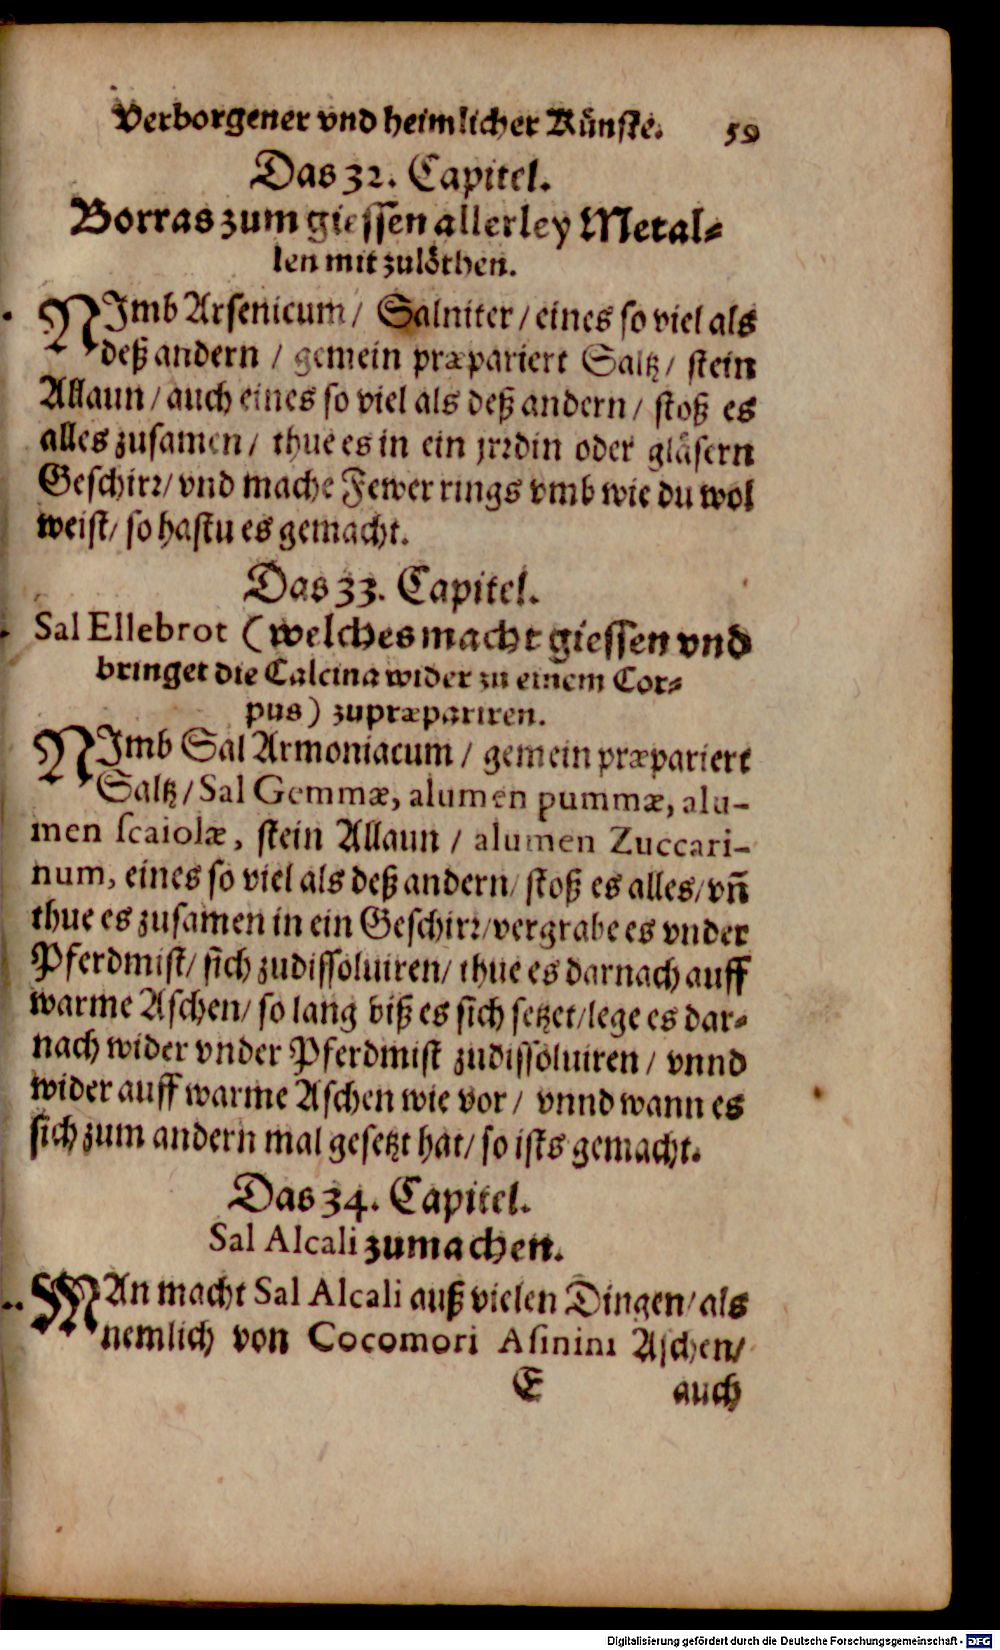 Verborgener vnd heimlicher Künste. 59
Das 32. Capitel.
Borras zum giessen allerley Metal-
len mit zulöthen.
NImb Arsenicum / Salniter / eines so viel als
deß andern / gemein præpariert Saltz / stein
Allaun / auch eines so viel als deß andern / stoß es
alles zusamen / thue es in ein jrrdin oder gläsern
Geschirr / vnd mache Fewer rings vmb wie du wol
weist / so hastu es gemacht.
Das 33. Capitel.
Sal Ellebrot (welches macht giessen vnd
bringet die Calcina wider zu einem Cor-
pus) zupræpariren.
NImb Sal Armoniacum / gemein præpariert
Saltz / Sal Gemmæ, alumen pummæ, alu-
men scaiolæ, stein Allaun / alumen Zuccari-
num, eines so viel als deß andern / stoß es alles / vñ
thue es zusamen in ein Geschirr / vergrabe es vnder
Pferdmist / sich zudissoluiren / thue es darnach auff
warme Aschen / so lang biß es sich setzet / lege es dar-
nach wider vnder Pferdmist zudissoluiren / vnnd
wider auff warme Aschen wie vor / vnnd wann es
sich zum andern mal gesetzt hat / so ists gemacht.
Das 34. Capitel.
Sal Alcali zumachen.
MAn macht Sal Alcali auß vielen Dingen / als
nemlich von Cocomori Asinini Aschen /
E auch
Digitalisierung gefördert durch die Deutsche Forschungsgemeinschaft - DFG